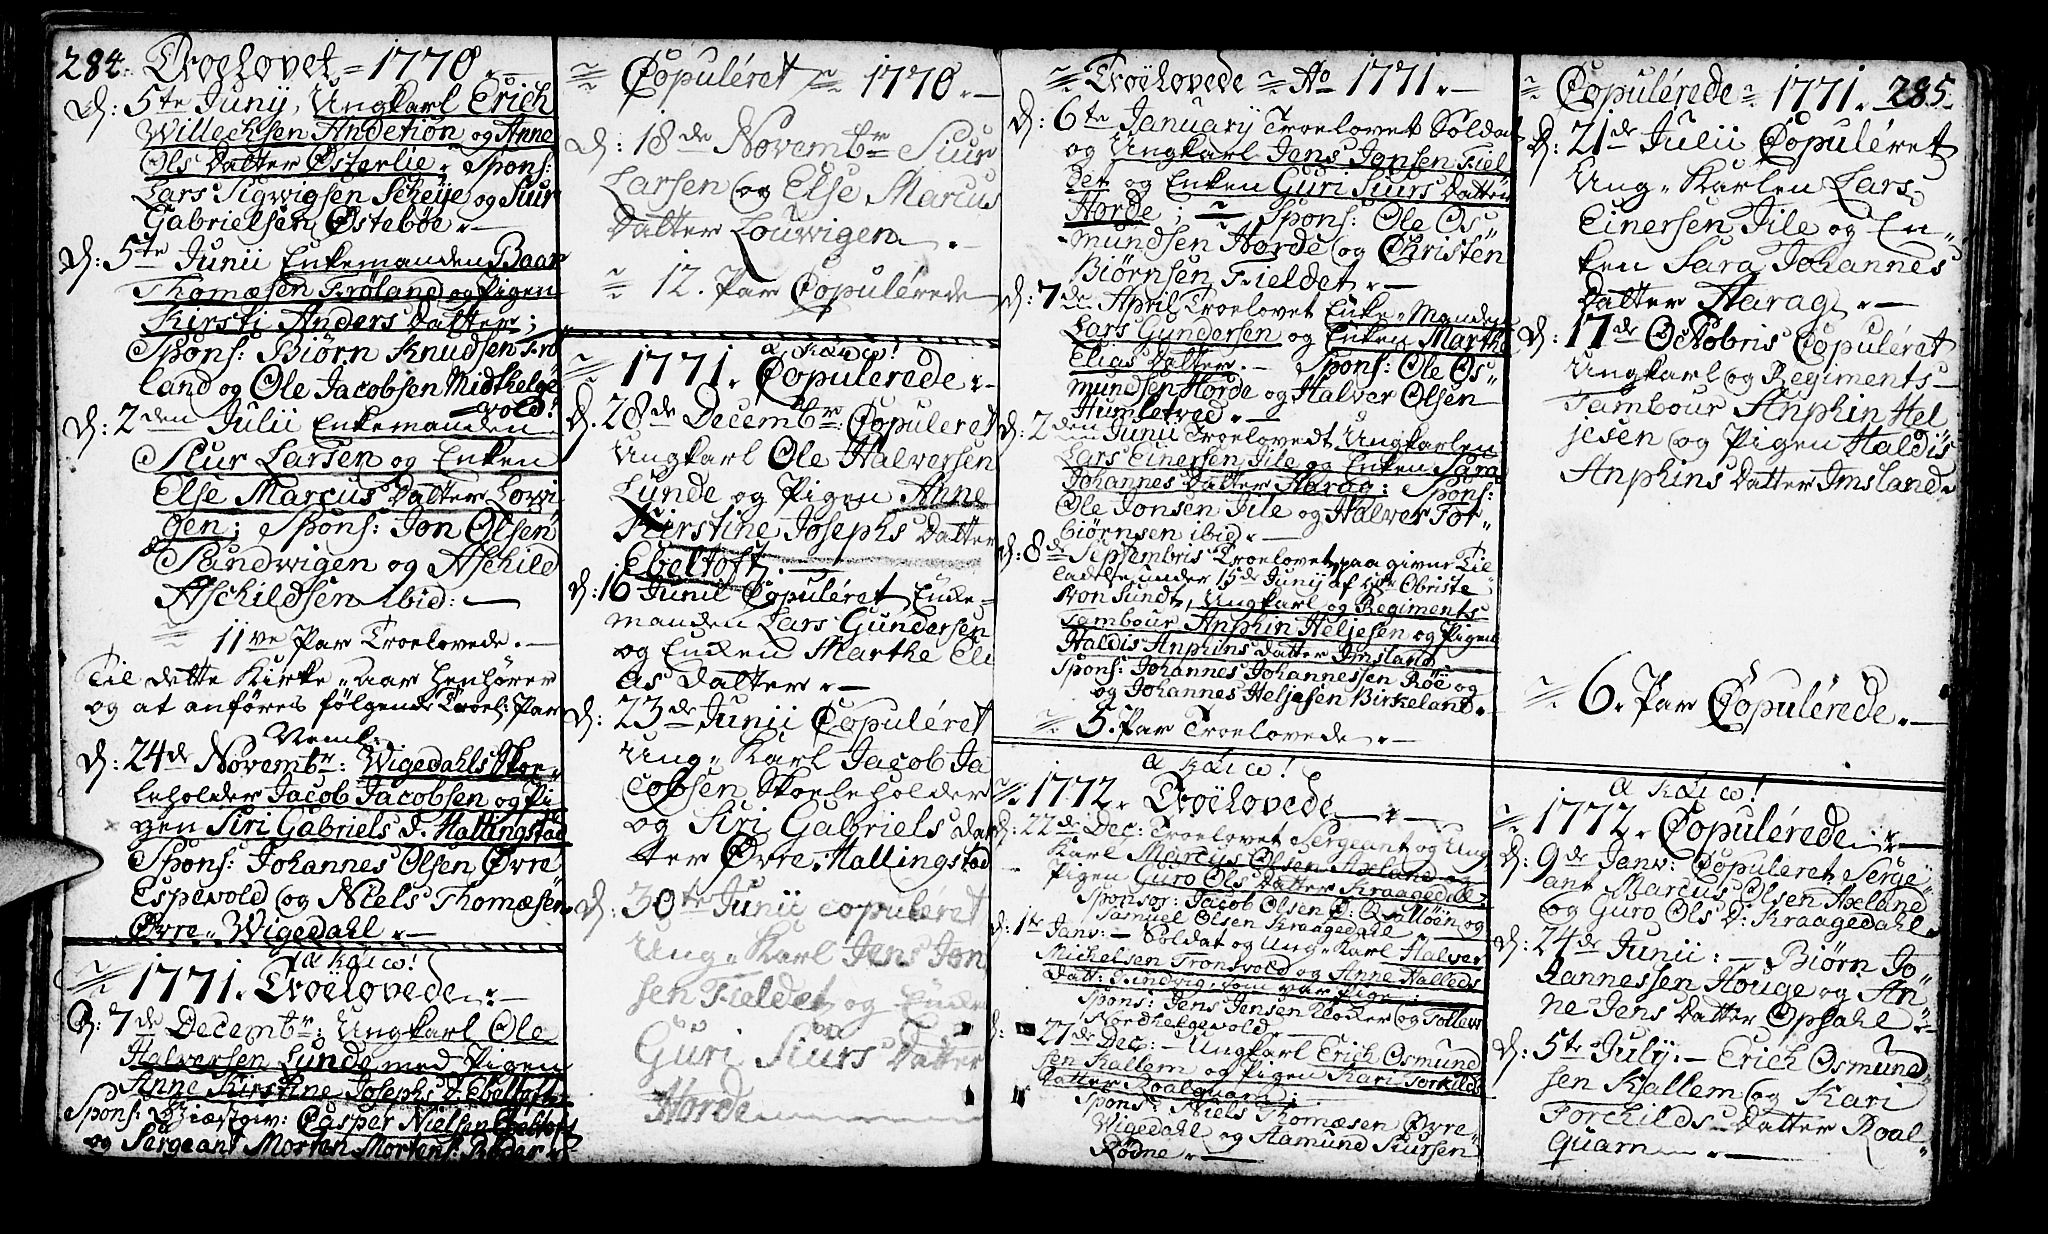 284. Troelovet = 1770.
D: 5te Junij, Ungkarl Erich
Willechsen Andetiøn og Anne
Ols Datter Østerlie. Spons:
Lars Sigwigsen Scheije og Siur
Gabrielsen Østebøe.
D: 5te Junii Enkemanden Baar
Thomæsen Frøland og Pigen
Kirsti Anders Datter;
Spons: Biørn Knudsen Frø
land og Ole Jacobsen Midthelge
vold!
D: 2den Julii Enkemanden
Siur Larsen og Enken
Else Marcus Datter Lowi
gen; Spons: Jon Olsen
Sandwigen og Aschild
Aschildsen ibid:
11ve Par Troelovede.
Til dette Kirke-Aar henhører
og at anføres følgende Troel: Par
Neml:
D: 24de Novembr: Wigedahls Skoe-
leholder Jacob Jacobsen og Pi
gen Siri Gabriels d. Hallingstad
Spons: Johannes Olsen Øvre
Espevold og Niels Thomæsen
Øvre-Wigedahl.
1771. Troelovede
D: 7de Decembr: Ungkarl Ole
Halversen Lunde med Pigen
Anne Kirstine Josephs d. Ebeltoft
Spons: Giæstgiv: Casper Nielsen Ebeltoft
og Sergeant Morten Mortens:
Copuléret 1770.
D: 18de Novembr Siur
Larsen og Else Marcus
Datter Louwigen
12. Par Copulérede
1771. Copulerede
D. 28de Decembr: Copuleret
Ungkarl Ole Halversen
Lunde og Pigen Anne
Kirstine Josephs Datter
Ebeltoft.
D: 16 Junii Copuléret Enke-
manden Lars Gundersen
og Enken Marthe Eli
as Datter
D: 23de Junii Copuléret
Ung-Karl Jacob Ja
cobsen Skoeleholder
og Siri Gabriels Dat
ter Øvre-Hallingstad
D: 30te Junii copuléret
Ung-Karl Jens Jon
sen Fieldet og Enken
Guri Siurs Datter
Horde
Troëlovede Ao 1771.
D: 6te January Troelovet Soldat
og Ungkarl Jens Jonsen Fiel
det og Enken Guri Siurs Datter
Horde; Spons: Ole Os-
mundsen Horde og Christen
Biørnsen Fieldet.
D: 7de April Troelovet Enke-Manden
Lars Gundersen og Enken Marthe
Elias Datter. Spons: Ole Os-
mundsen Horde og Halver Olsen
Humletved.
D: 2den Junii Troelovedt Ungkarlen
Lars Einersen Jile og Enken Sara
Johannes Datter Harag: Spons:
Ole Jonsen Jile og Halver Tor-
biørnsen ibid.
D: 8de Septembris Troelovet, paa given Til
ladelse under 15de Junij af Hr Obriste
von Sundt, Ungkarl og Regiments
Tambour Anphin Heljesen og Pigen
Haldis Anphins Datter Imsland
Spons: Johannes Johannessen Røe og
og Johannes Heljesen Birkeland.
5. Par Troelovede
1772. Troëlovede
D: 22de Dec: Troelovet Sergeant og Ung
Karl Marcus Olsen Axeland og
Pigen Guro Ols Datter Kraagedal
Sponsor: Jacob Olsen Ø: Qvalløen og
Samuel Olsen Kraagedahl
D: 1te Janv: Soldat og Ung-Karl Halver
Michelsen Tronsvold og Anne Halleds
Datt: Sundvig, som var Pige
Spons: Jens Jensen Klocker og Tollew
Nordhelgevold
27de Dec: Ungkarl Erich Osmund
sen Kallem og Pigen Kari Torkilds
Datter Roalquam;
Spons: Niels Thomæsen Øvre
Wigedahl og Aamund Siursen
Rødne
Copulérede 1771. 285.
D: 21de Julii Copuléret
Ung-Karlen Lars
Einersen Jile og En-
ken Sara Johannes
Datter Harag.
D: 17de Octobris Copuléret
Ungkarl og Regiments
Tambour Anphin Hel
jesen og Pigen Haldis
Anphins Datter Imsland
6. Par Copulérede.
1772. Copulérede
D: 9de Janv: Copuléret Serge-
ant Marcus Olsen Axeland
og Guro Ols D: Kraagedahl
D: 24de Junii: Biørn Jo
hannessen Houge og An-
ne Jens Datter Opsahl
D: 5te July: Erich Osmund
sen Kallem og Kari
Torchilds Datter Roal-
quam